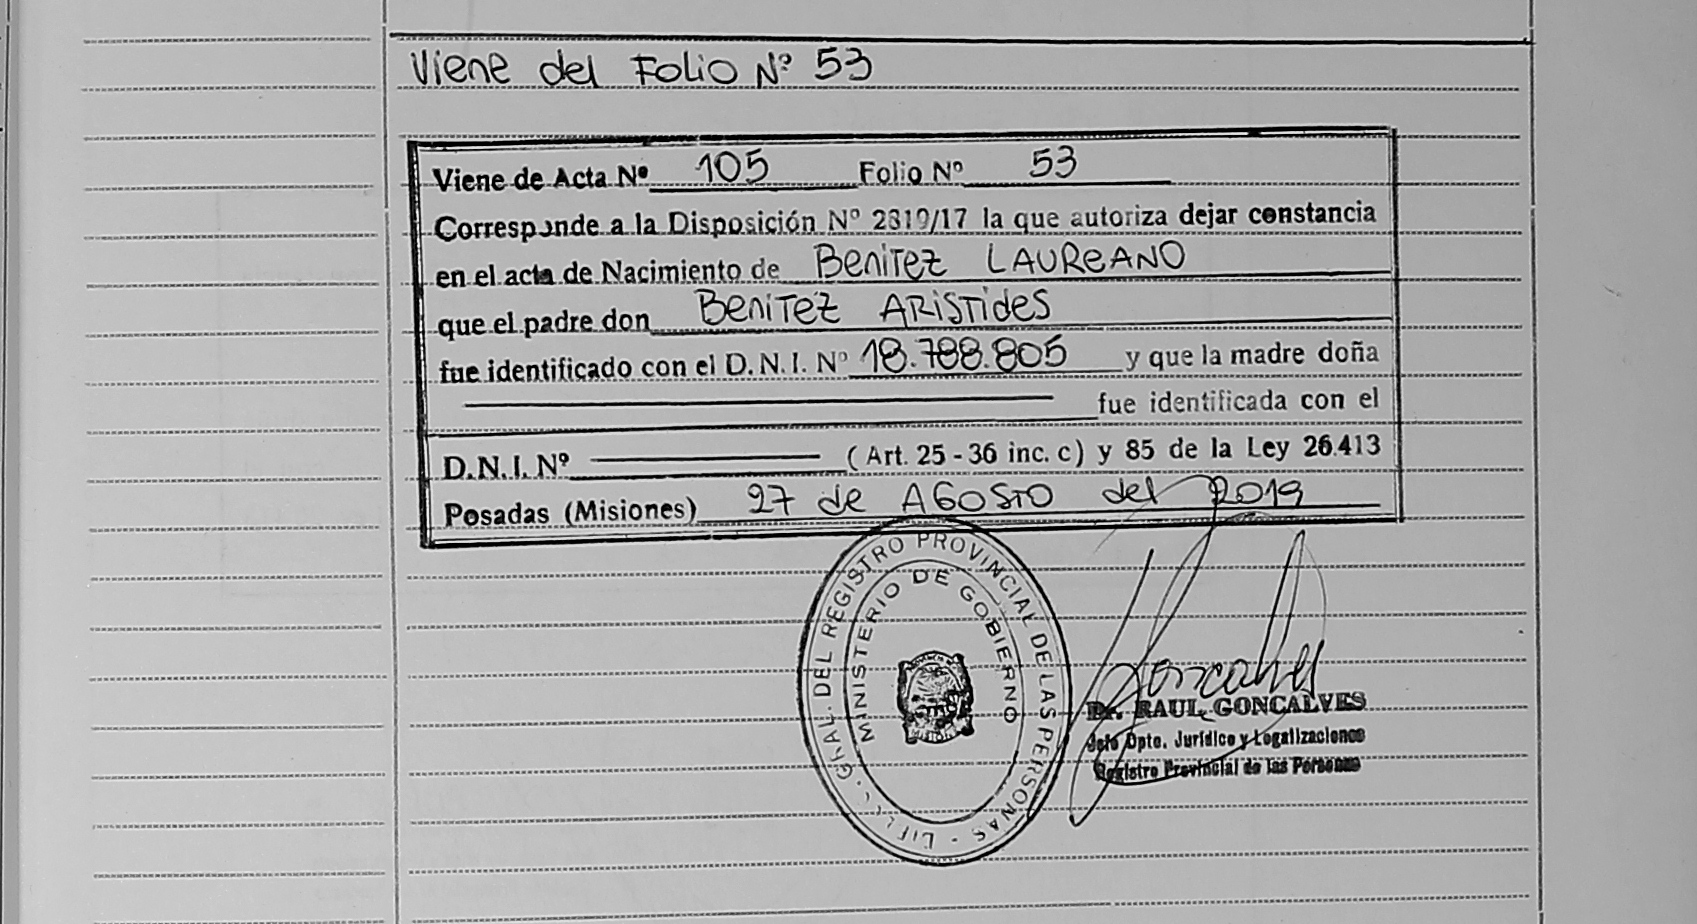 Viene del Folio Nº 53
Viene de Acta Nº 105 Folio Nº 53
Corresponde a la Disposición Nº 2319/17 la que autoriza dejar constancia
en el acta de Nacimiento de Benitez LAUREANO
que el padre don BENITEZ ARISTIDES
fue identificado con el D.N.I. Nº 18.788.805 y que la madre doña
fue identificada con el
D.N.I. Nº (Art. 25 - 36 inc. c) y 85 de la Ley 26.413
Posadas (Misiones) 27 de AGOSTO del 2019
GRAL. DEL REGISTRO PROVINCIAL DE LAS PERSONAS
MINISTERIO DE GOBIERNO
Goncalves
Dr. RAUL GONCALVES
Jefe Dpto. Jurídico y Legalizaciones
Registro Provincial de las Personas